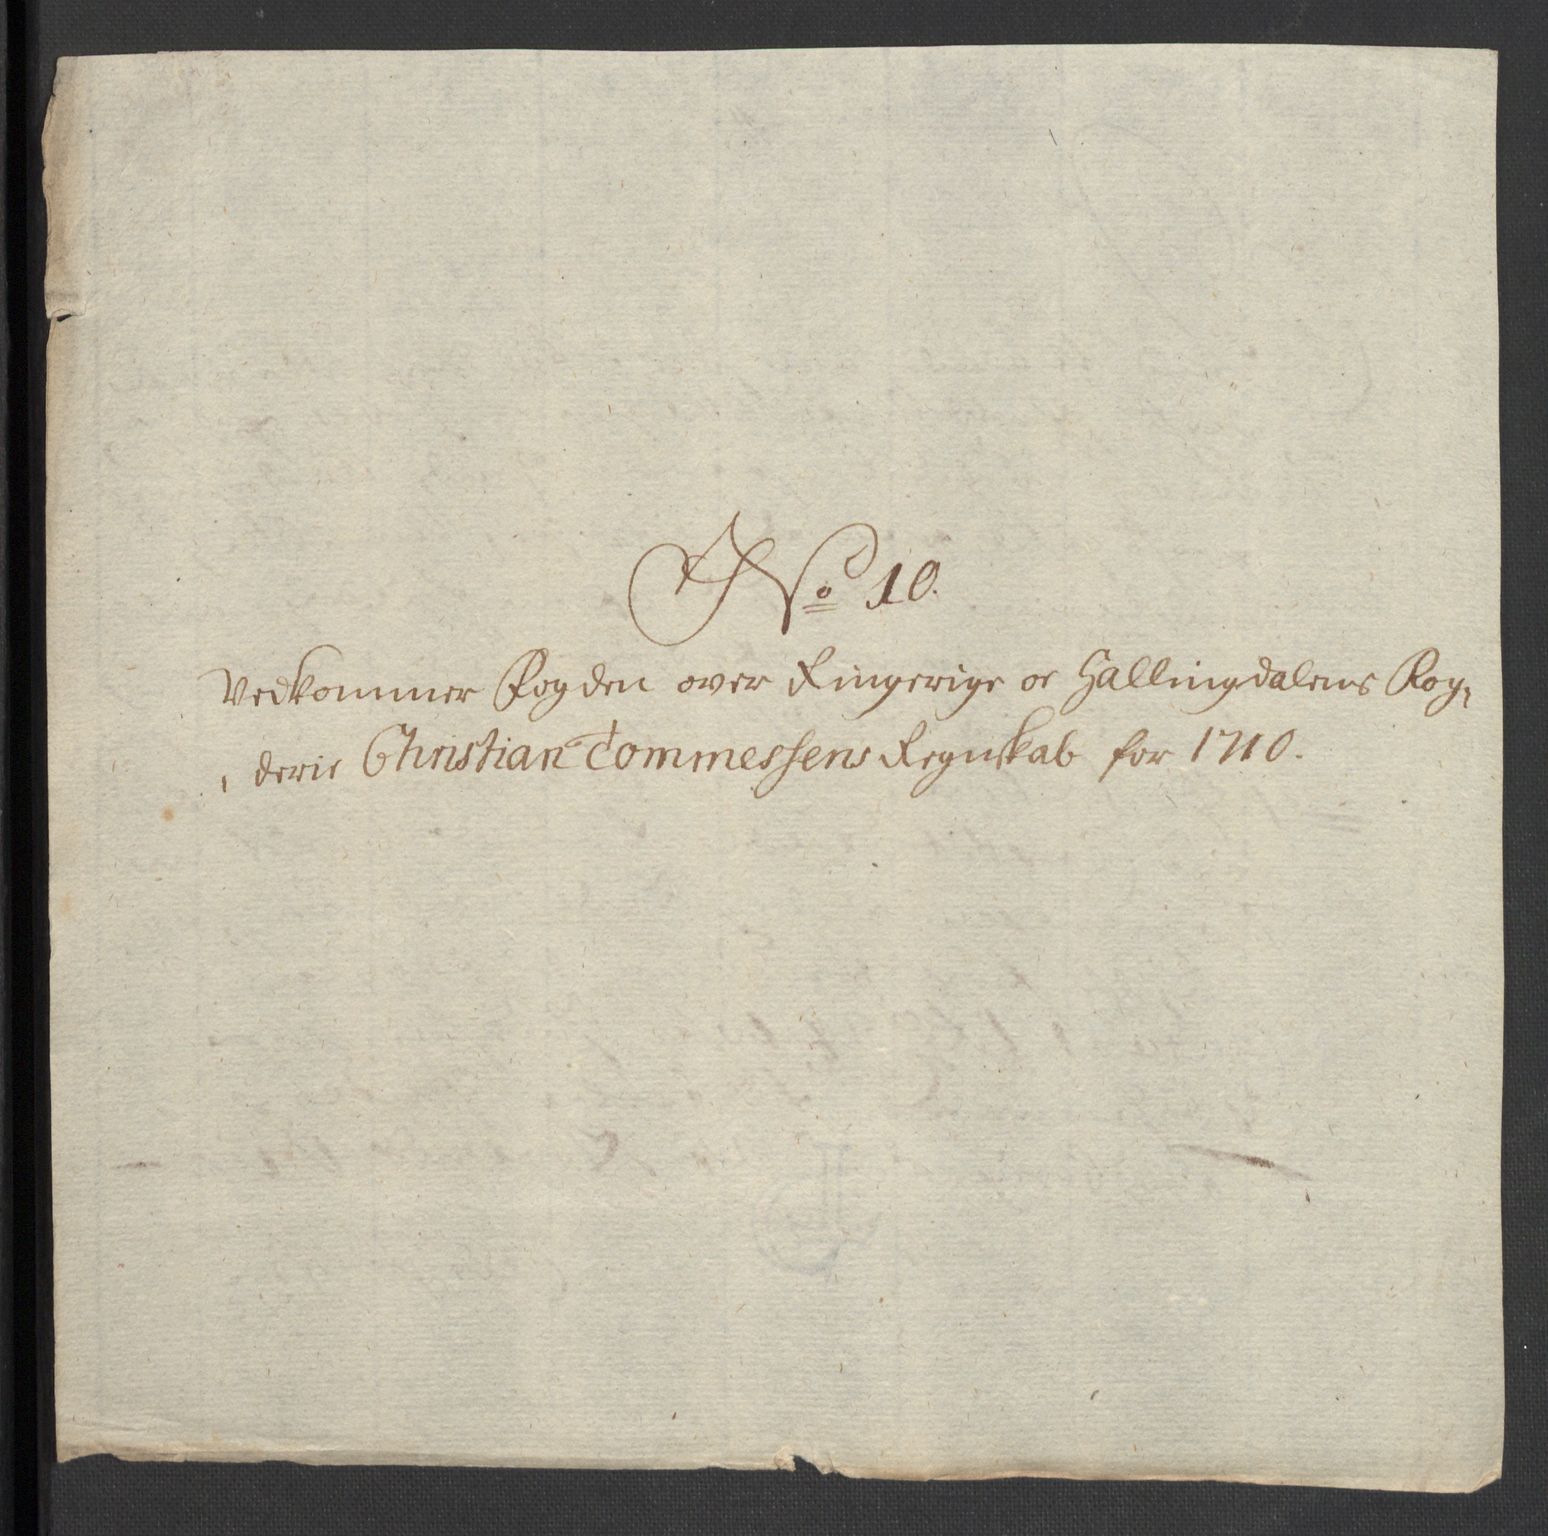 No 10.
Vedkommer Fogden over Ringerige oc Hallingdalens Fog,
, derie Christian Tommessens Regnskab for 1710.